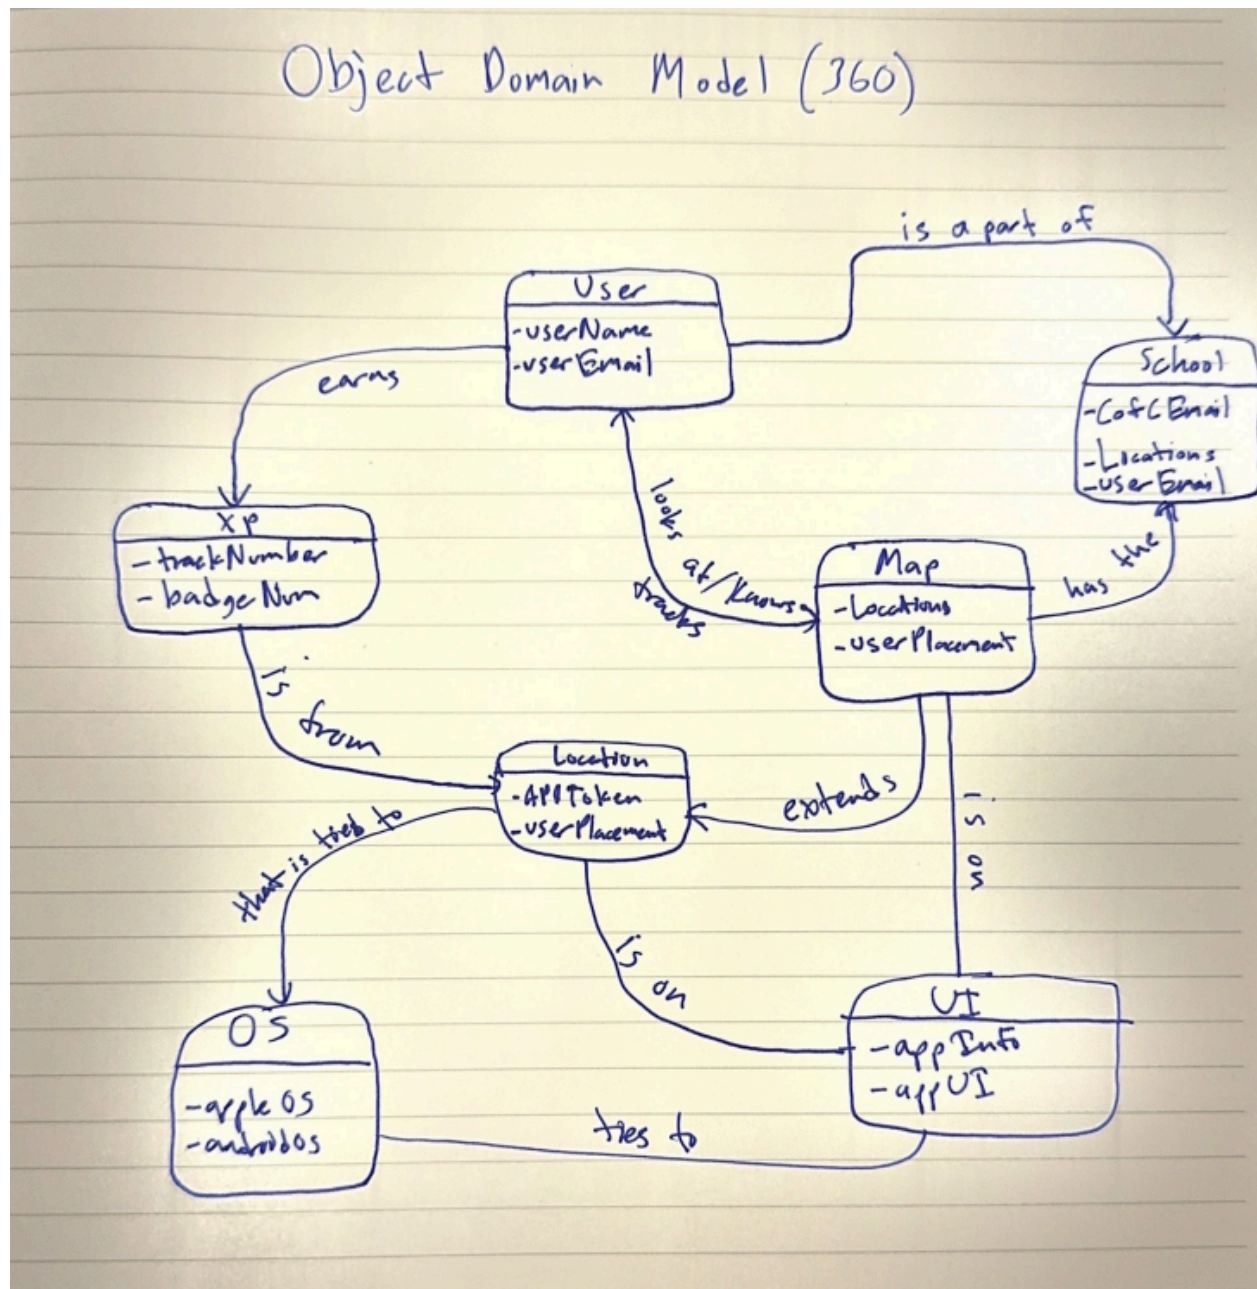 Object Domain Model (360)
is a part of
User
-userName
-userEmail
earns
School
-CofCEmail
-Locations
-userEmail
looks at/knows
tracks
XP
-trackNumber
-badgeNum
Map
-Locations
-userPlacement
has the
is from
Location
-APIToken
-userPlacement
extends
is on
that is tied to
is on
OS
-appleOS
-androidOS
UI
-appInfo
-appUI
ties to